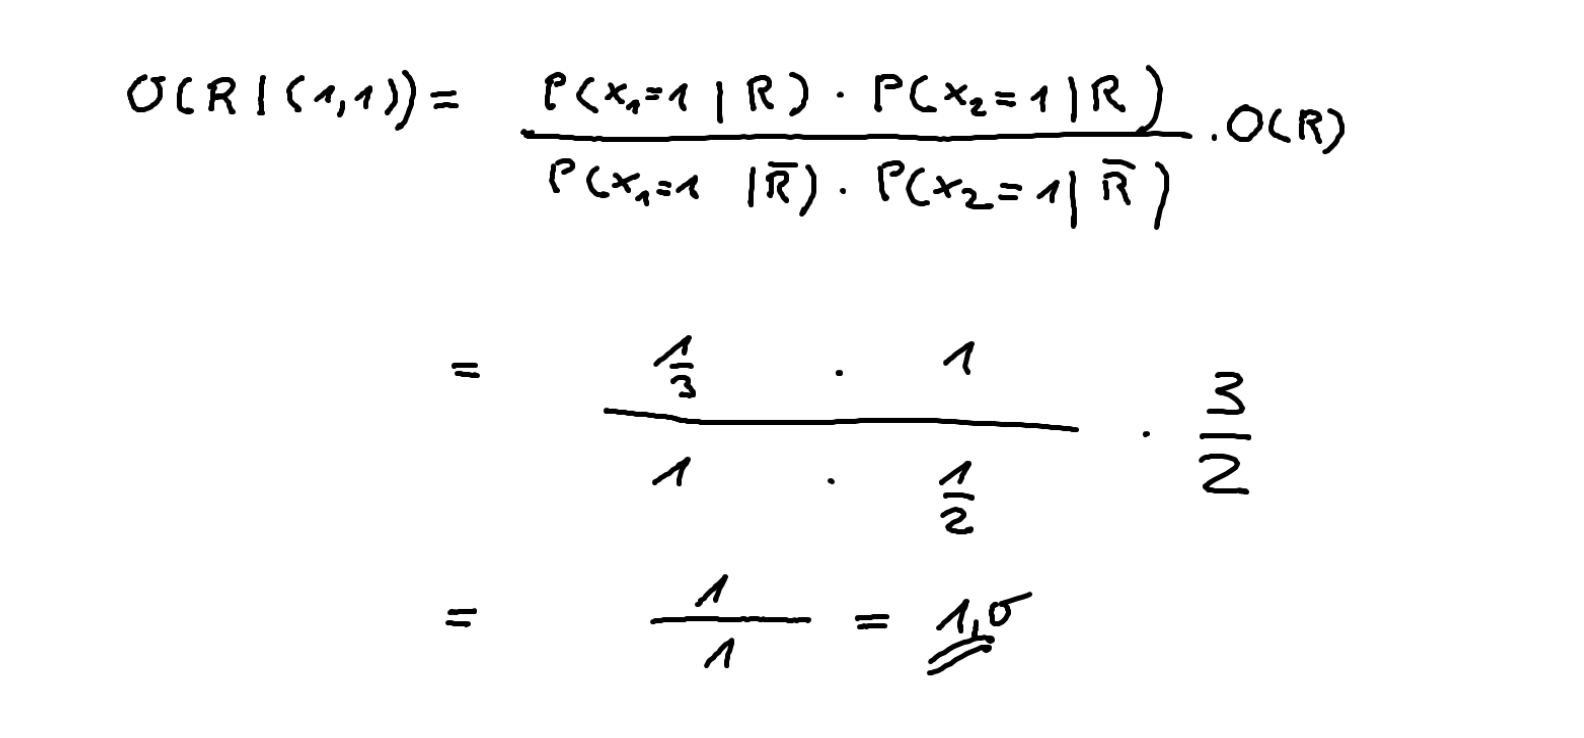 O(R | (1,1)) = P(x₁=1 | R) · P(x₂=1 | R) / P(x₁=1 | R̅) · P(x₂=1 | R̅) · O(R)
= 1/3 · 1 / 1 · 1/2 · 3/2
= 1/1 = 1,0